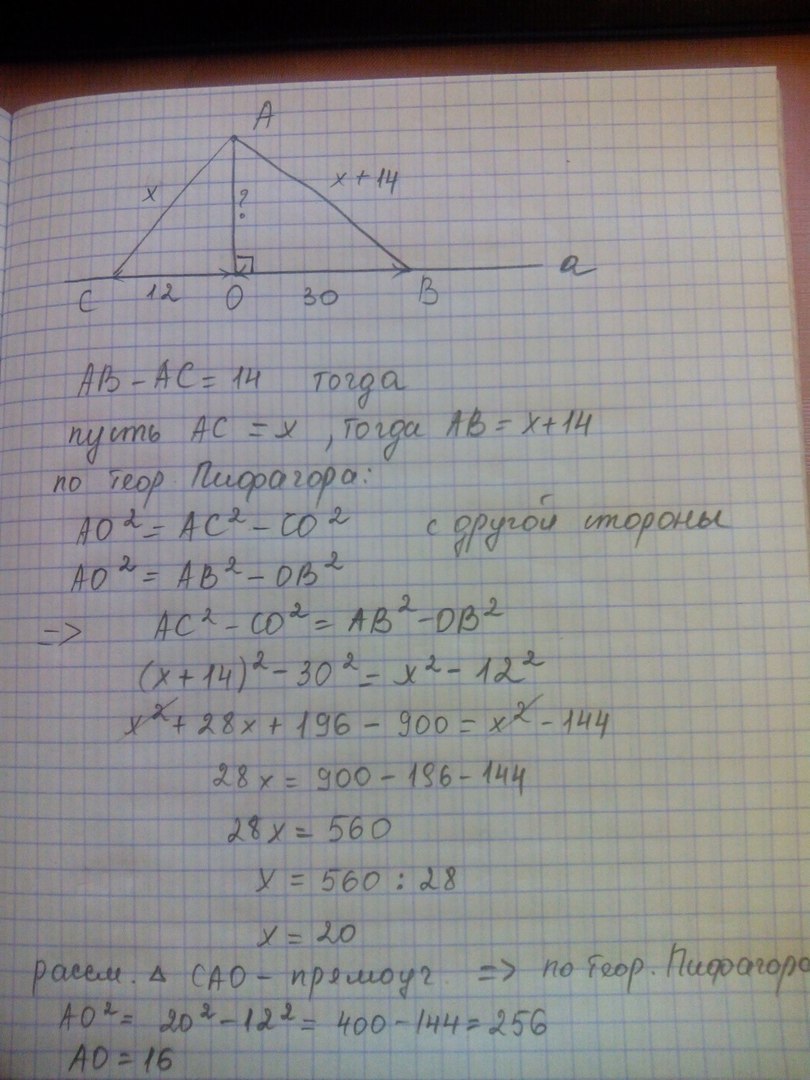 A
x
x + 14
?
C 12 O 30 B a
AB - AC = 14 тогда
пусть AC = x , тогда AB = x+14
по теор. Пифагора:
AO² = AC² - CO² с другой стороны
AO² = AB² - OB²
=> AC² - CO² = AB² - OB²
(x + 14)² - 30² = x² - 12²
x² + 28x + 196 - 900 = x² - 144
28x = 900 - 196 - 144
28x = 560
x = 560 : 28
x = 20
рассм. △ CAO - прямоуг. => по теор. Пифагора
AO² = 20² - 12² = 400 - 144 = 256
AO = 16